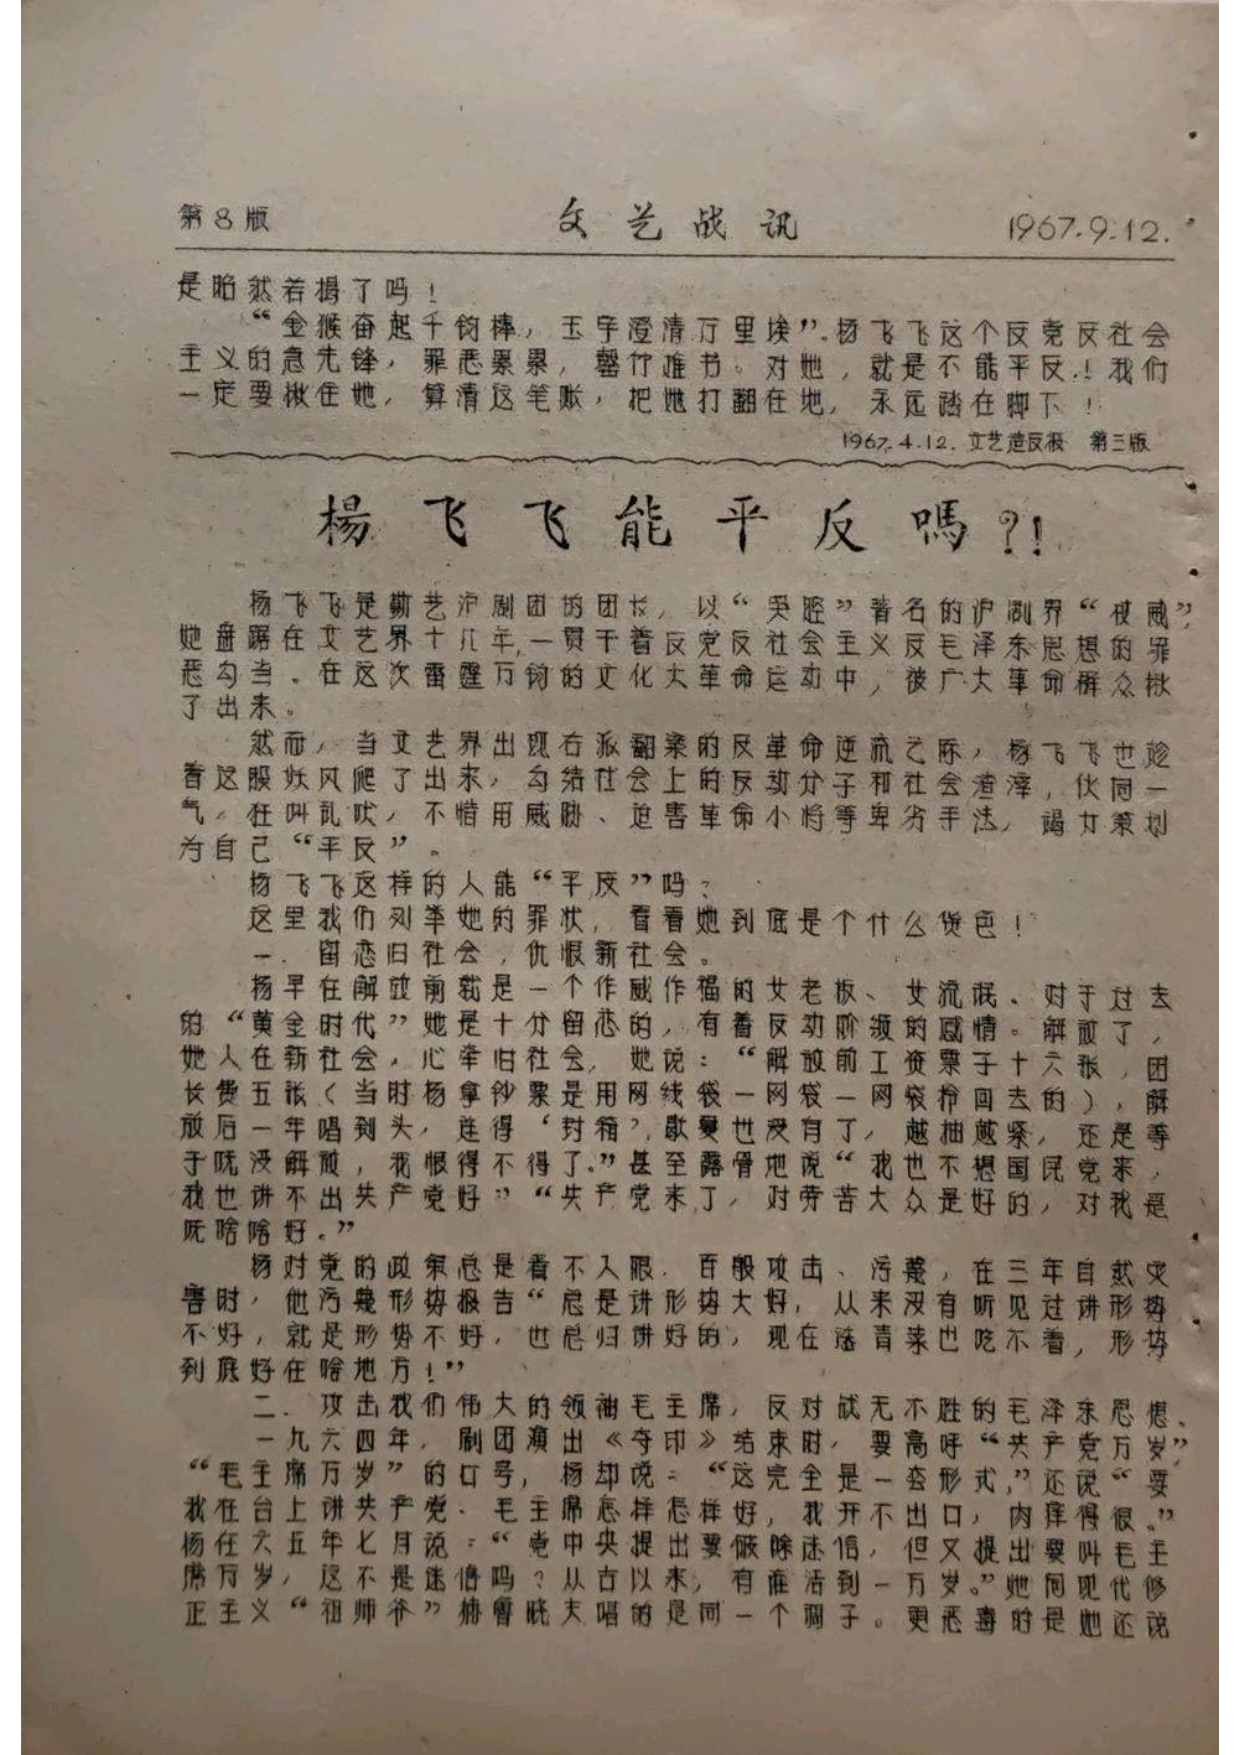 第8版 文艺战讯 1967.9.12.
是昭然若揭了吗！
“金猴奋起千钧棒，玉宇澄清万里埃”。杨飞飞这个反党反社会
主义的急先锋，罪恶累累，罄竹难书。对她，就是不能平反！我们
一定要揪住她，算清这笔账，把她打翻在地，永远踏在脚下！
1967.4.12.文艺造反报 第三版
楊飞飞能平反嗎？！
杨飞飞是勤艺沪剧团的团长，以“哭腔”著名的沪剧界“权威”，
她盘踞在文艺界十几年，一贯干着反党反社会主义反毛泽东思想的罪
恶勾当。在这次雷霆万钧的文化大革命运动中，被广大革命群众揪
了出来。
然而，当文艺界出现右派翻案的反革命逆流之际，杨飞飞也趁
着这股妖风爬了出来，勾结社会上的反动分子和社会渣滓，伙同一
气，狂叫乱吠，不惜用威胁、迫害革命小将等卑劣手法，竭力策划
为自己“平反”。
杨飞飞这样的人能“平反”吗？
这里我们列举她的罪状，看看她到底是个什么货色！
一．留恋旧社会，仇恨新社会。
杨早在解放前就是一个作威作福的女老板、女流氓、对于过去
的“黄金时代”她是十分留恋的，有着反动阶级的感情。解放了，
她人在新社会，心牵旧社会，她说：“解放前工资票子十六张，团
长费五张（当时杨拿钞票是用网线袋一网袋一网袋拎回去的），解
放后一年唱到头，连得‘封箱’，歇夏也没有了，越抽越紧，还是等
于呒没解放，我恨得不得了。”甚至露骨地说“我也不想国民党来，
我也讲不出共产党好”“共产党来了，对劳苦大众是好的，对我是
呒啥啥好。”
杨对党的政策总是看不入眼．百般攻击、污蔑，在三年自然灾
害时，他污蔑形势报告“总是讲形势大好，从来没有听见过讲形势
不好，就是形势不好，也总归讲好的，现在连青菜也吃不着，形势
到底好在啥地方！”
二．攻击我们伟大的领袖毛主席，反对战无不胜的毛泽东思想。
一九六四年，剧团演出《夺印》结束时，要高呼“共产党万岁”，
“毛主席万岁”的口号，杨却说：“这完全是一套形式，”还说“要
我在台上讲共产党、毛主席怎样怎样好，我开不出口，肉痒得很。”
杨在六五年七月说：“党中央提出要破除迷信，但又提出要叫毛主
席万岁，这不是迷信吗？从古以来，有谁活到一万岁。”她同现代修
正主义“祖师爷”赫鲁晓夫唱的是同一个调子。更恶毒时是她还说